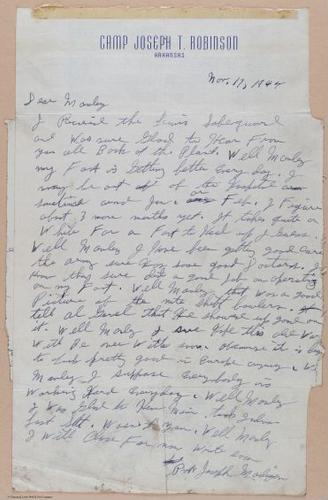 CAMP JOSEPH T. ROBINSON
ARKANSAS
Nov. 17, 1944
Dear Manly
I Received the
and Was sure Glad to Hear From
you all Back at the Plant. Well Manly
my Foot is Getting better Every day. I
may be out of the Hospital
around Jan. or Feb. I Figure
about 3 more months yet. It takes quite a
While For a Foot to Heal up I Guess.
Well Manly I have been getting good Care
the army sure Has some good Doctors.
they sure did a good job on operating
on my Foot. Well Manly that was a good
Picture of the nite shift
tell al that He showed up good on
it. Well Manly I sure Hope this War
Will Be over With soon. it is
to look pretty good in Europe anyway.
Manly I suppose Everybody is
Working Hard Everyday. Well Manly
I Was Glad to Hear
Well Manly
I Will Close For now Write soon
Pvt Joseph